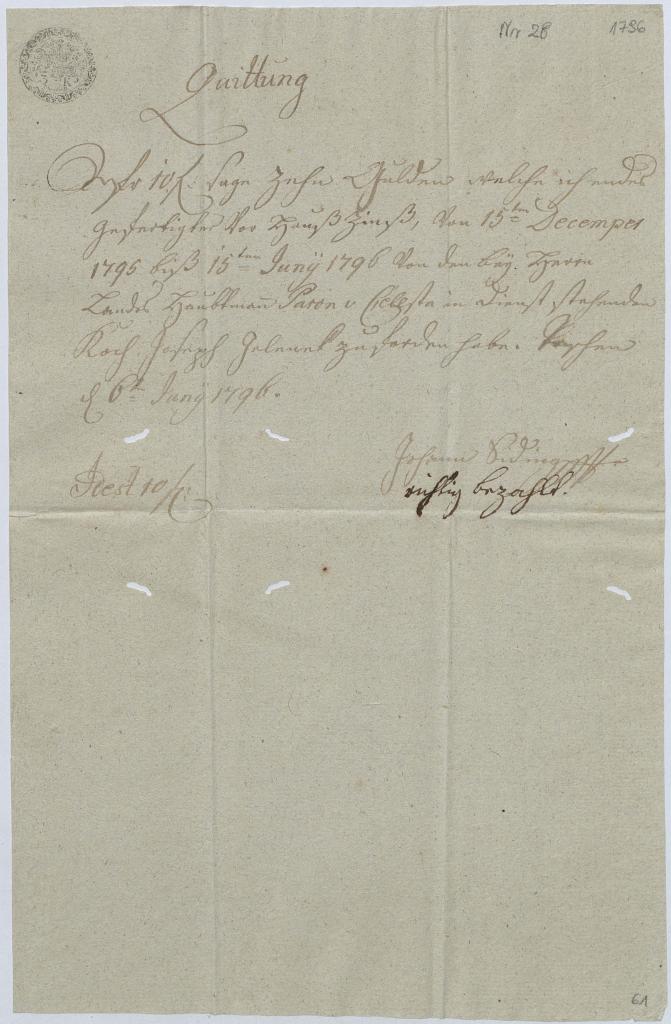 Nrr 28 1796
Quittung
Pr 10 f: sage Zehn Gulden welche ich endes
gefertigter Vor Hauß Zinß, Von 15ten Decemper
1795 biß 15ten Junÿ 1796 Von den beÿ Herrn
Landes Haubtmann Paron v in Dienst stehenden
Koch Joseph Jelenek zu forden habe.
d 6t Junÿ 1796.
Johann
Idest 10 f:
richtig bezahlt.
61